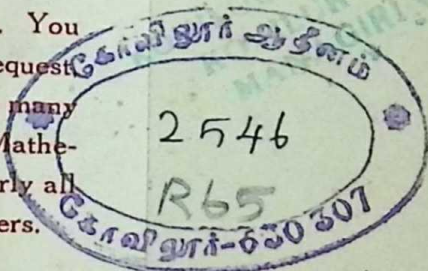 You
equest
many
Mathe-
rly all
ers.
கோவிலூர் ஆதீனம்
2546
R65
கோவிலூர்-630307